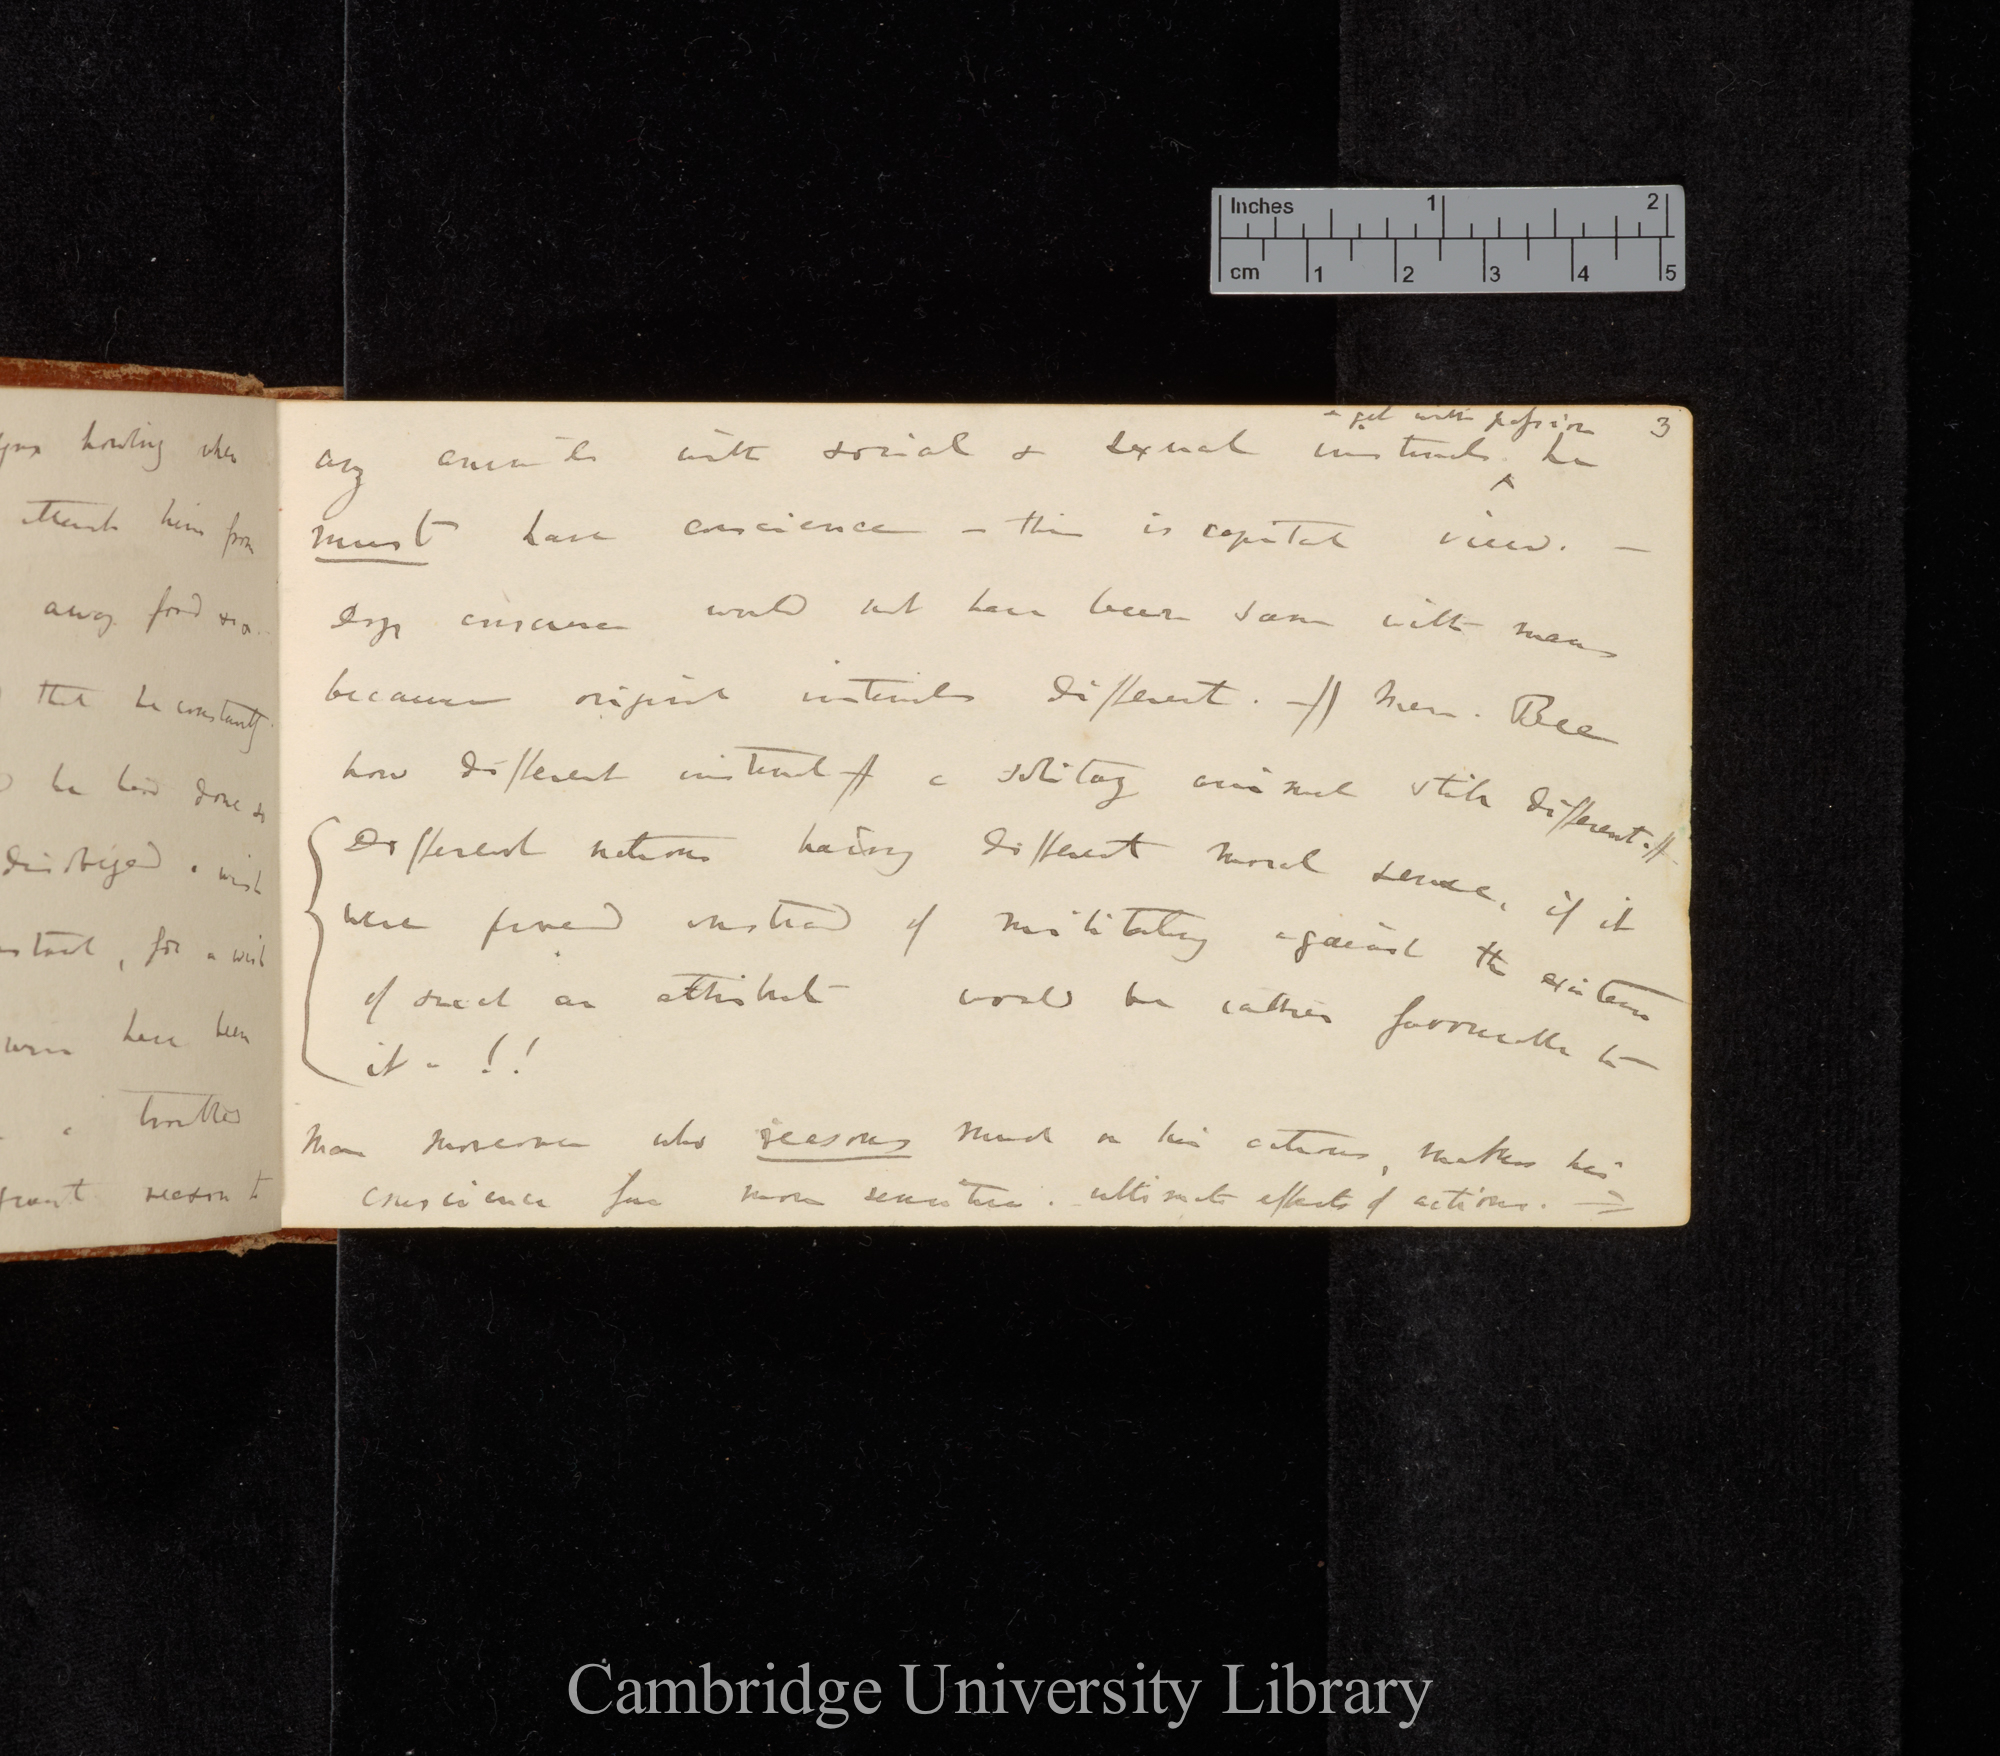 ying howling when
attends him from
away food &c.
that he constantly
he had done so
disobeyed a wish
instinct, for a wish
were have been
troubled
great reason to
& yet with passion 3
any animals with social & sexual instincts ^ he
must have conscience — this is capital view. —
Dogs conscience would not have been same with mans
because original instincts different. — // Man. Bee
how different instinct // a solitary animal still different. //
Different nations having different moral sense, if it
were proved instead of militating against the existence
of such an attribute would be rather favourable to
it — !!
Man moreover who reasons much on his actions, makes his
conscience far more sensitive. ultimate effects of actions. —
Inches 1 2
cm 1 2 3 4 5
Cambridge University Library